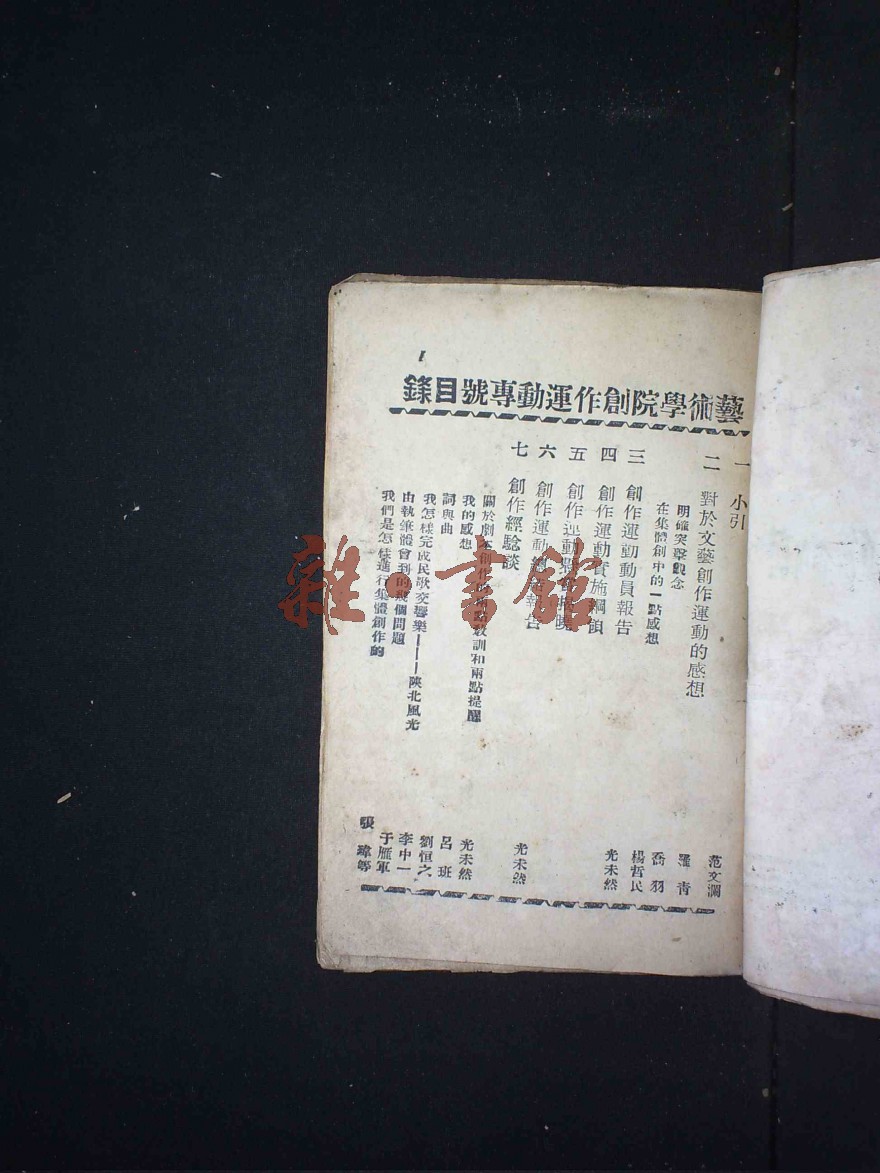 1
藝術學院創作運動專號目錄
一 小引 范文瀾
二 對於文藝創作運動的感想
明確突擊觀念 羅青
在集體創中的一點感想 喬羽
三 創作運動動員報告 楊哲民
四 創作運動實施綱領 光未然
五 創作運動
六 創作運動總結報告
七 創作經驗談 光未然
關於劇本創作的兩點教訓和兩點提醒 光未然
我的感想 呂班
詞與曲 劉恒之
我怎樣完成民歌交響樂———陝北風光 李中一
由執筆體會到的幾個問題 于雁軍
我們是怎樣進行集體創作的 張瑋等
雜·書館